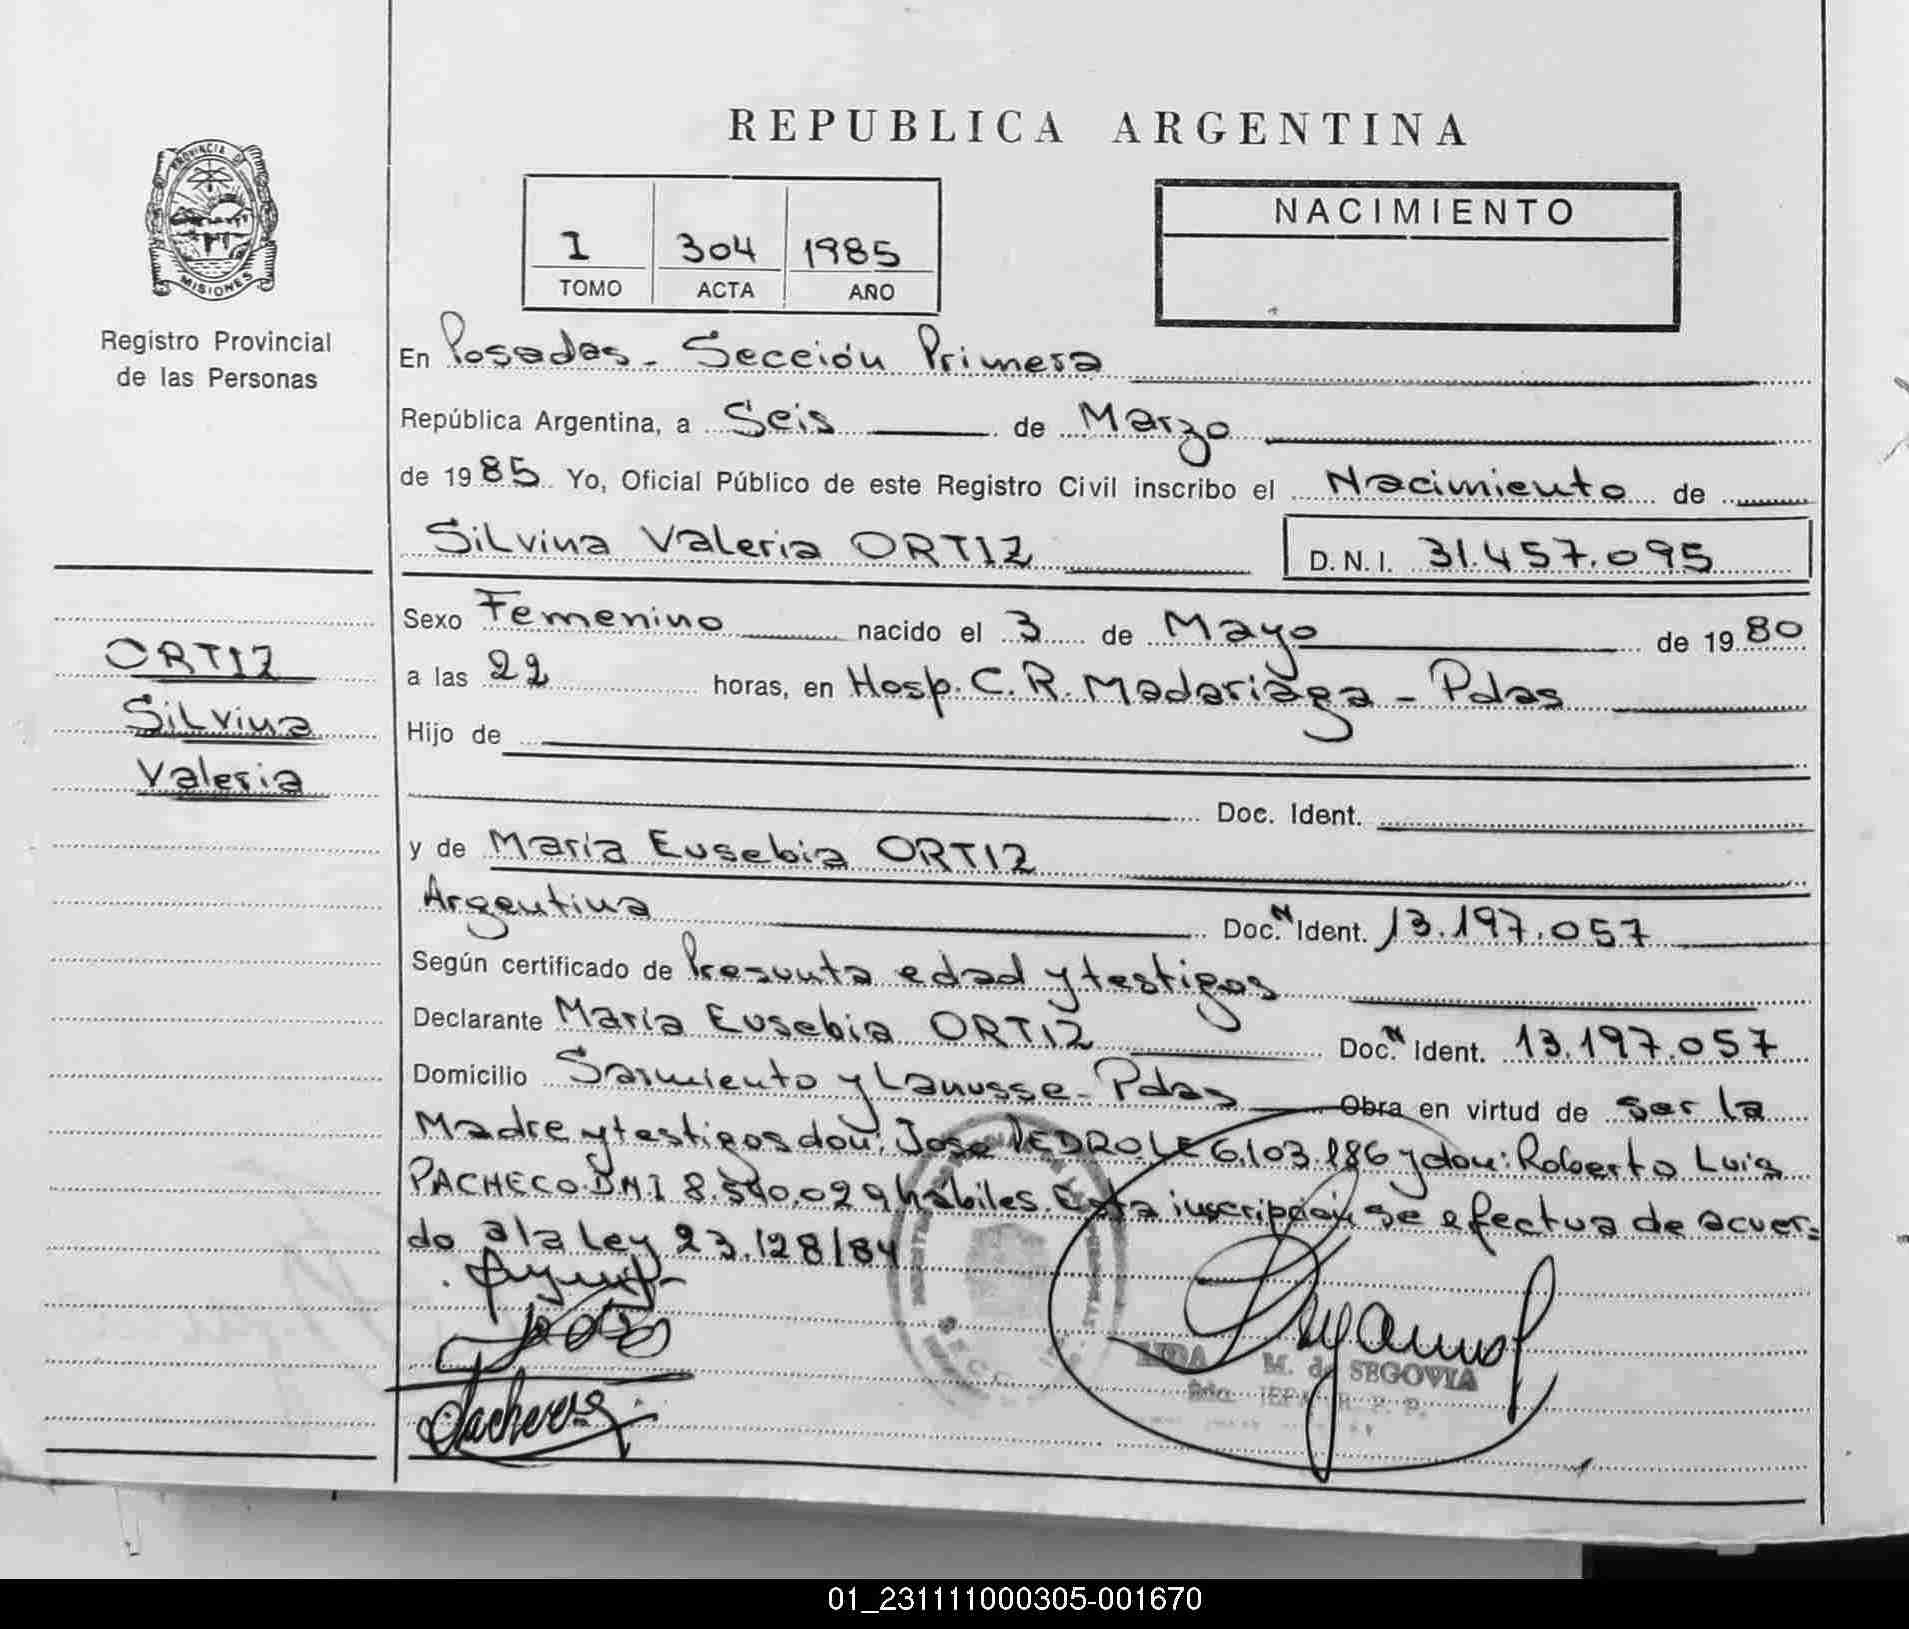 REPUBLICA ARGENTINA
PROVINCIA DE
MISIONES
Registro Provincial
de las Personas
I 304 1985
TOMO ACTA AÑO
NACIMIENTO
En Posadas - Sección Primera
República Argentina, a Seis de Marzo
de 1985 Yo, Oficial Público de este Registro Civil inscribo el Nacimiento de
Silvina Valeria ORTIZ D.N.I. 31.457.095
Sexo Femenino nacido el 3 de Mayo de 1980
a las 22 horas, en Hosp. C. R. Madariaga - Pdas
Hijo de
Doc. Ident.
y de María Eusebia ORTIZ
Argentina Doc. N Ident. 13.197.057
Según certificado de Presunta edad y testigos
Declarante María Eusebia ORTIZ Doc. N Ident. 13.197.057
Domicilio Sarmiento y Lanusse - Pdas Obra en virtud de ser la
Madre y testigos don: Jose PEDRO LE 6.103.186 y don: Roberto Luis
PACHECO DNI 8.540.029 hábiles. Esta inscripción se efectua de acuer=
do a la Ley 23.128/84
ORTIZ
Silvina
Valeria
M. de SEGOVIA
01_231111000305-001670